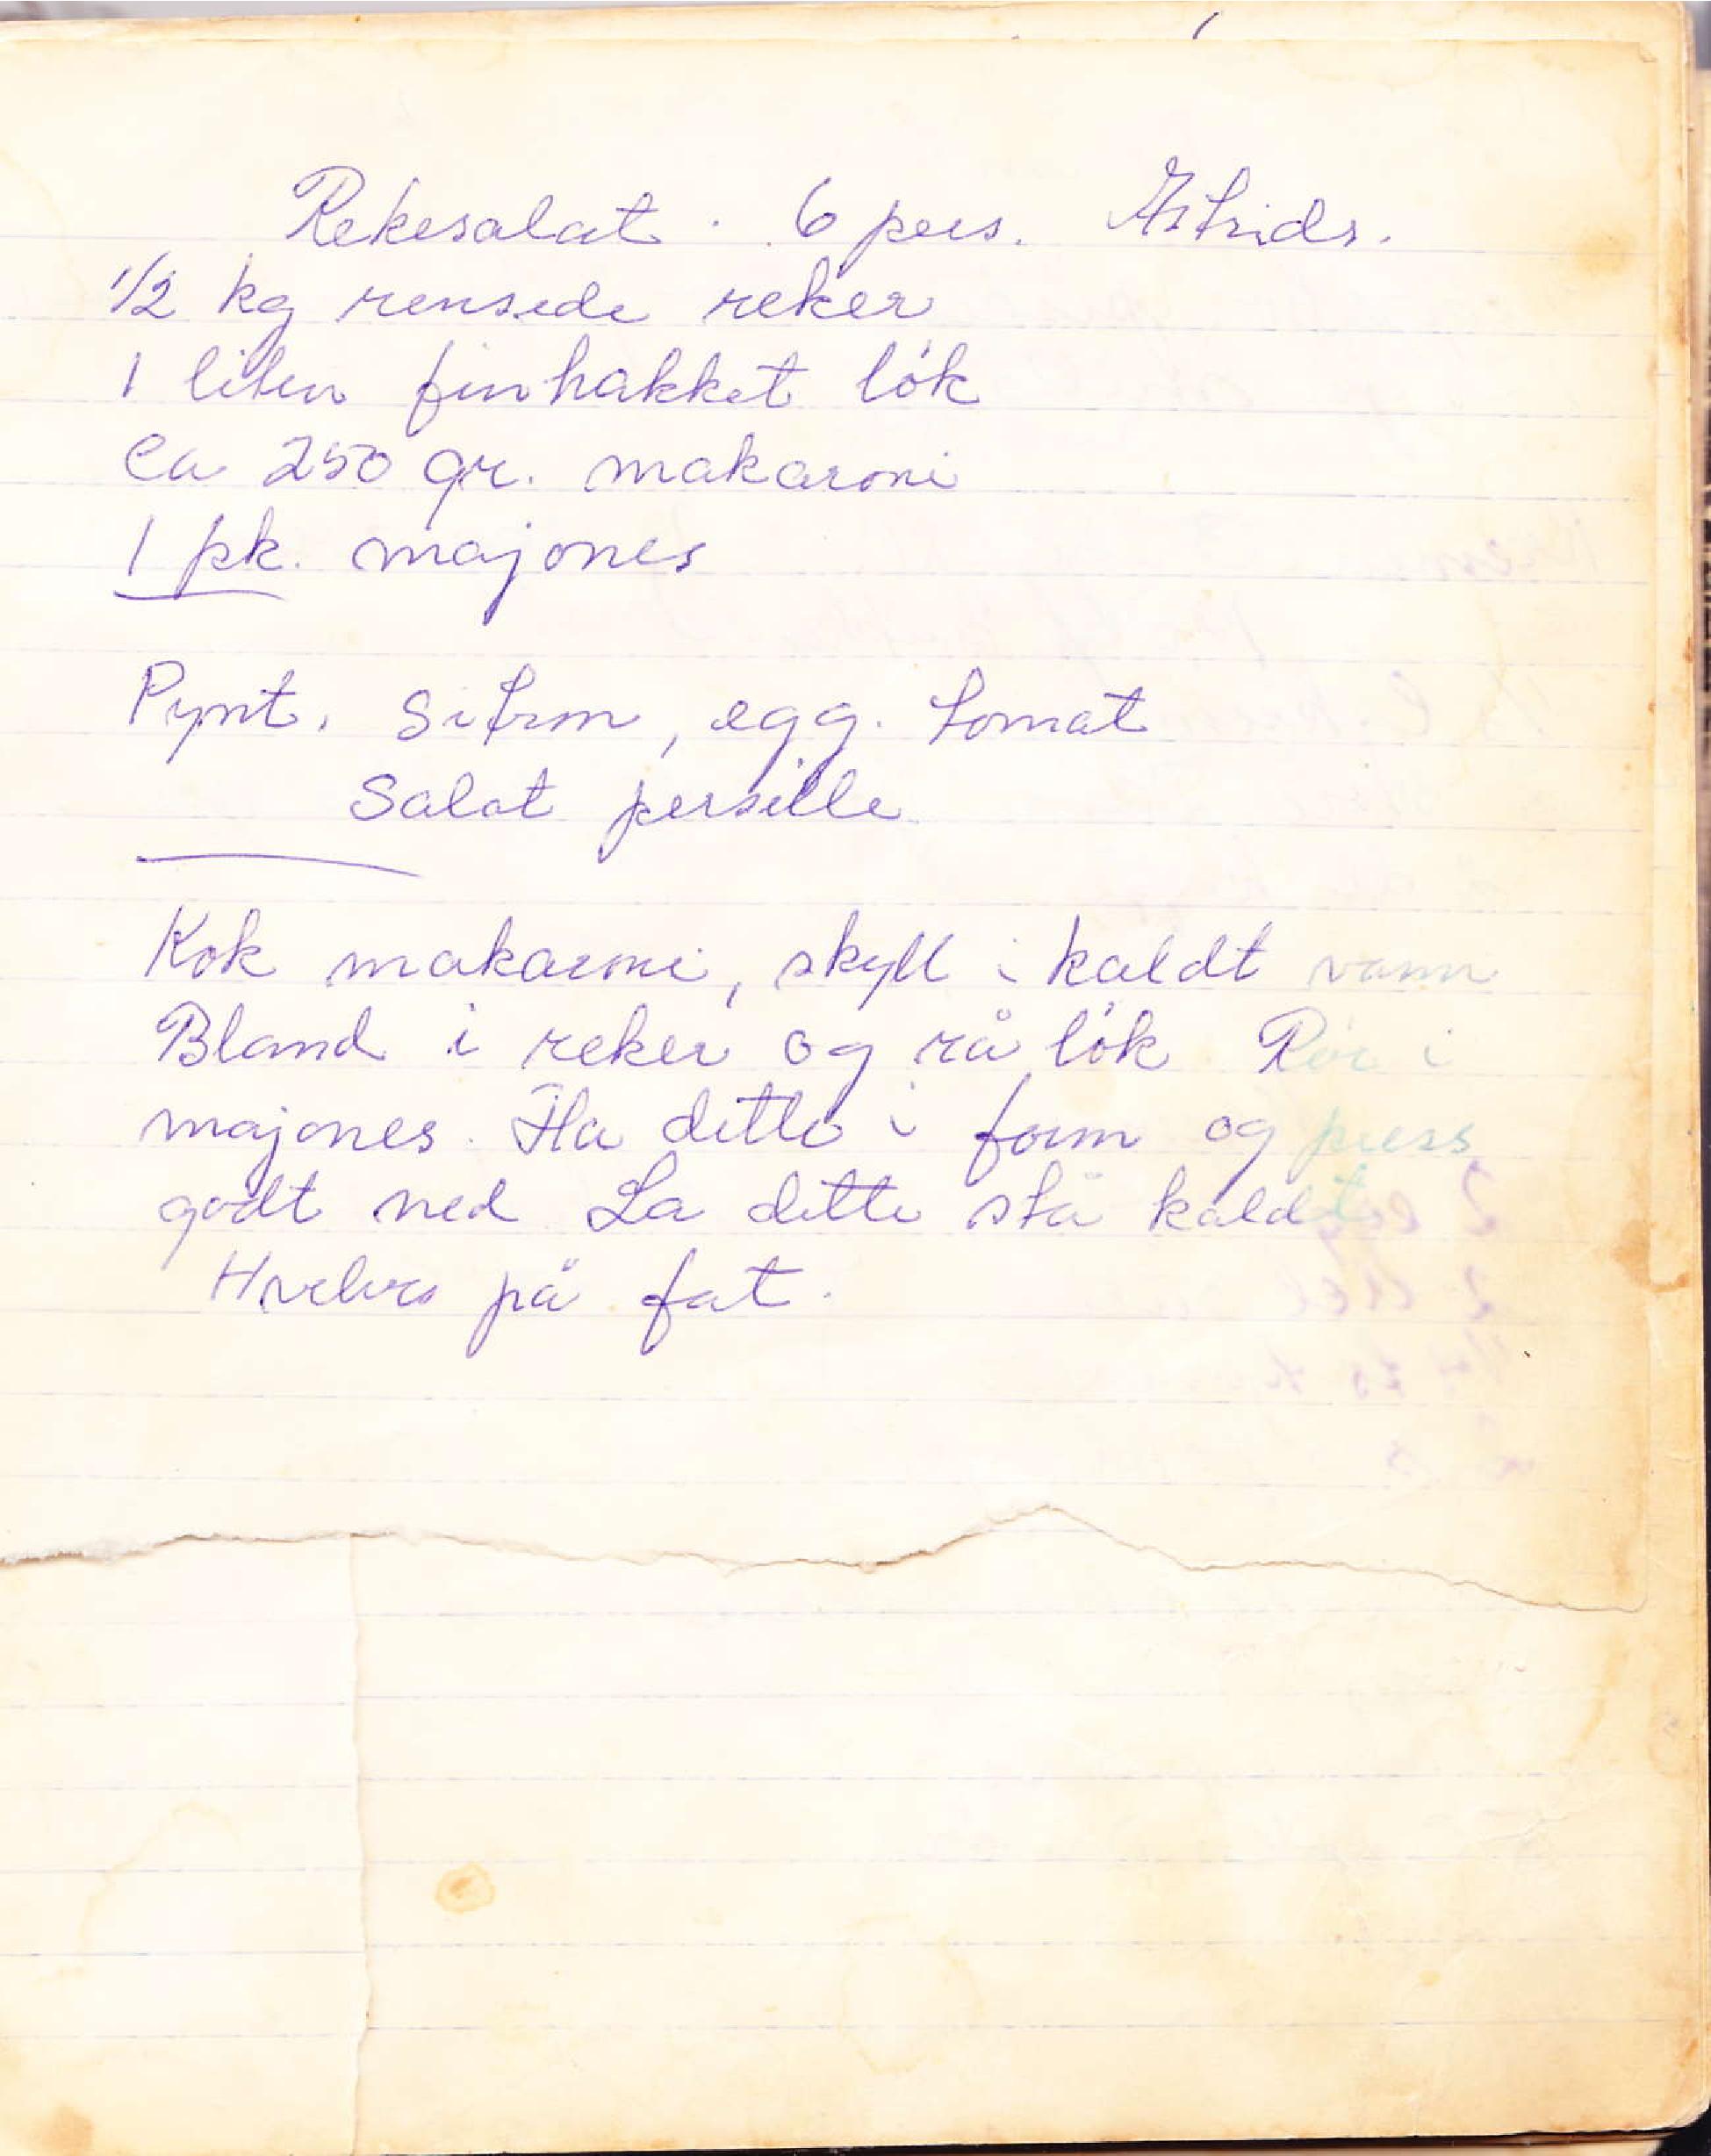 Rekesalat. 6 pers. Astrids.
1/2 kg rensede reker
1 liten finhakket lök
Ca 250 gr. makaroni
1 pk. majones
Pynt. Sitron, egg. tomat
Salat persille
Kok makaroni, skyll i kaldt vann
Bland i reker og rå lök Rör i
majones. Ha dette i form og press
godt ned La dette stå kaldt
Hvelves på fat.